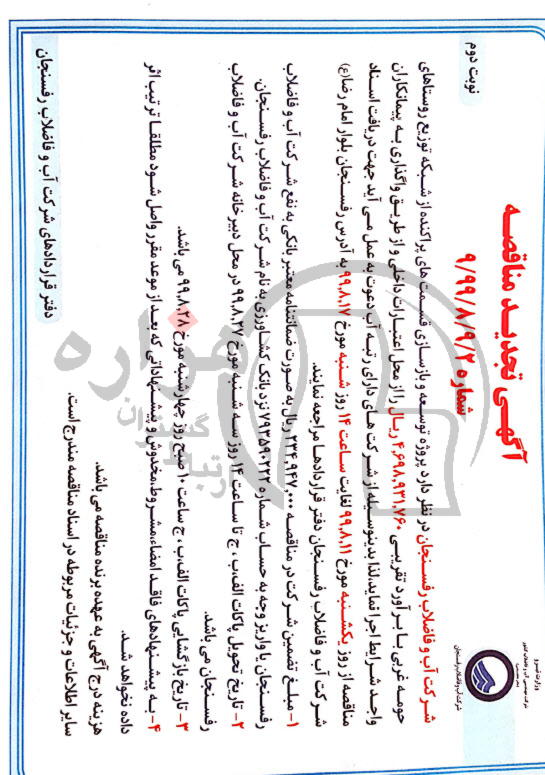 وزارت نیرو
شرکت مهندسی آب و فاضلاب کشور
شرکت آب و فاضلاب رفسنجان
آگهی تجدید مناقصه
شماره ۹/۹۹/۸/۹/۲
نوبت دوم
شرکت آب و فاضلاب رفسنجان در نظر دارد پروژه توسعه و بازسازی قسمت های پراکنده از شبکه توزیع روستاهای
حومه غربی با برآورد تقریبی ۴,۶۹۸,۹۳۱,۷۶۰ ریال را از محل اعتبارات داخلی و از طریق واگذاری به پیمانکاران
واجد شرایط اجرا نماید،لذا بدینوسیله از شرکت های دارای رتبه آب دعوت به عمل می آید جهت دریافت اسناد
مناقصه از روز یکشنبه مورخ ۹۹,۸,۱۱ لغایت ساعت ۱۴ روز شنبه مورخ ۹۹,۸,۱۷ به آدرس رفسنجان بلوار امام رضا(ع)
شرکت آب و فاضلاب رفسنجان دفتر قراردادها مراجعه نمایند.
۱- مبلغ تضمین شرکت در مناقصه ۲۳۴,۹۴۷,۰۰۰ ریال به صورت ضمانتنامه معتبر بانکی به نفع شرکت آب و فاضلاب
رفسنجان یا واریز وجه به حساب شماره ۷۹۳۵۹۰۲۲۲ نزد بانک کشاورزی به نام شرکت آب و فاضلاب رفسنجان.
۲- تاریخ تحویل پاکات الف،ب ، ج تا ساعت ۱۴ روز سه شنبه مورخ ۹۹,۸,۲۷ در محل دبیرخانه شرکت آب و فاضلاب
رفسنجان می باشد.
۳- تاریخ بازگشایی پاکات الف،ب ، ج ساعت ۱۰ صبح روز چهارشنبه مورخ ۹۹,۸,۲۸ می باشد.
۴- به پیشنهادهای فاقد امضاء،مشروط،مخدوش و پیشنهاداتی که بعد از موعد مقرر واصل شود مطلقا ترتیب اثر
داده نخواهد شد.
هزینه درج آگهی به عهده برنده مناقصه می باشد.
سایر اطلاعات و جزئیات مربوطه در اسناد مناقصه مندرج است.
دفتر قراردادهای شرکت آب و فاضلاب رفسنجان